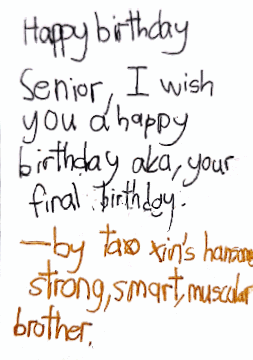 Happy birthday
Senior, I wish
you a happy
birthday aka, your
final birthday.
—by tao xin's hansome
strong, smart, muscular
brother.